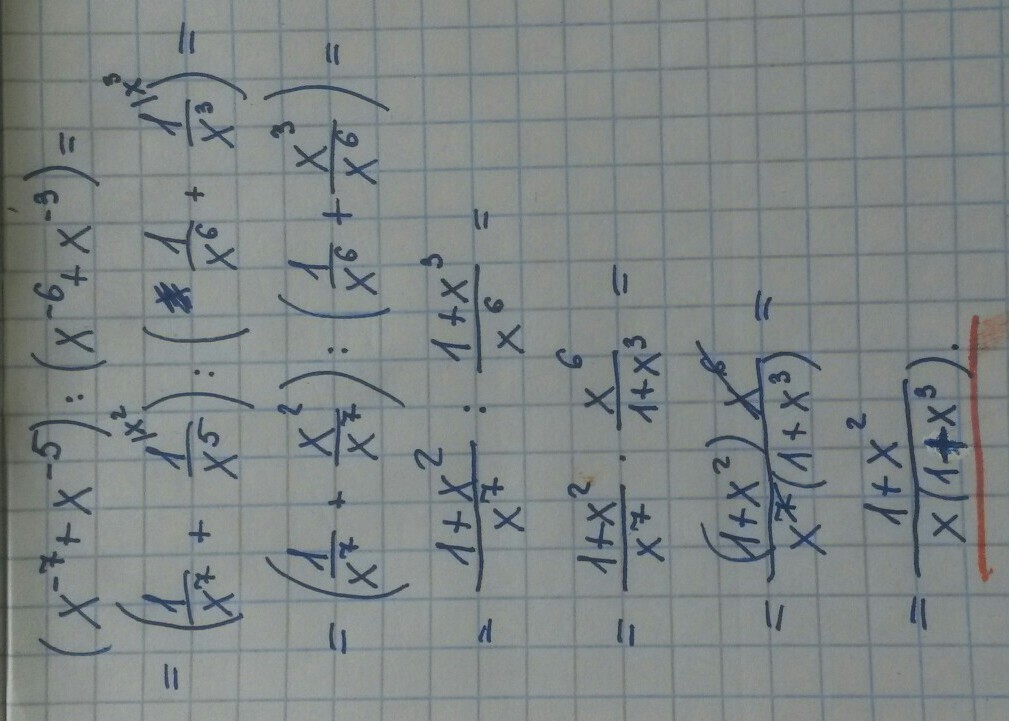 (x⁻⁷ + x⁻⁵) : (x⁻⁶ + x⁻³) =
= (1/x⁷ + 1\x²/x⁵) : (1/x⁶ + 1\x³/x³) =
= (1/x⁷ + x²/x⁷) : (1/x⁶ + x³/x⁶) =
= 1+x²/x⁷ : 1+x³/x⁶ =
= 1+x²/x⁷ · x⁶/1+x³ =
= (1+x²) x⁶/x⁷(1+x³) =
= 1+x²/x(1+x³).